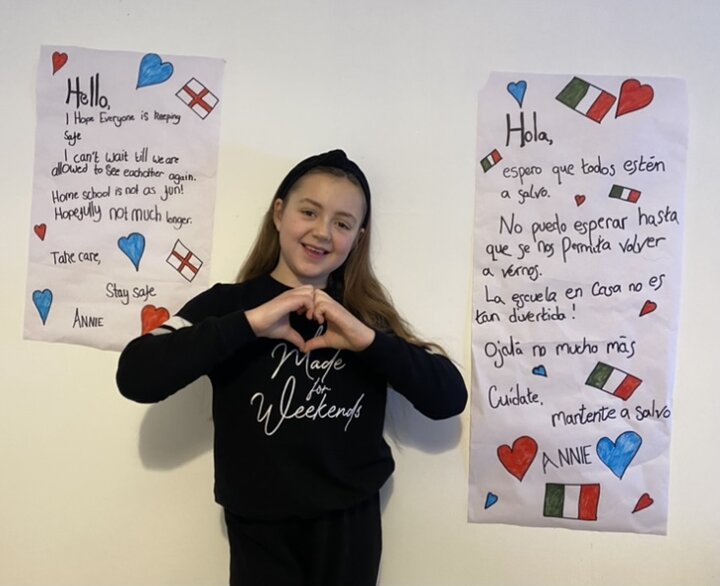 Hello,
I Hope Everyone is keeping
Safe
I can't wait till we are
allowed to see eachother again.
Home school is not as fun!
Hopefully not much longer.
Take care,
Stay safe
ANNIE
Made
for
Weekends
Hola,
espero que todos estén
a salvo.
No puedo esperar hasta
que se nos Permita volver
a vernos.
La escuela en Casa no es
tan divertida!
Ojalá no mucho más
Cuídate,
mantente a salvo
ANNIE